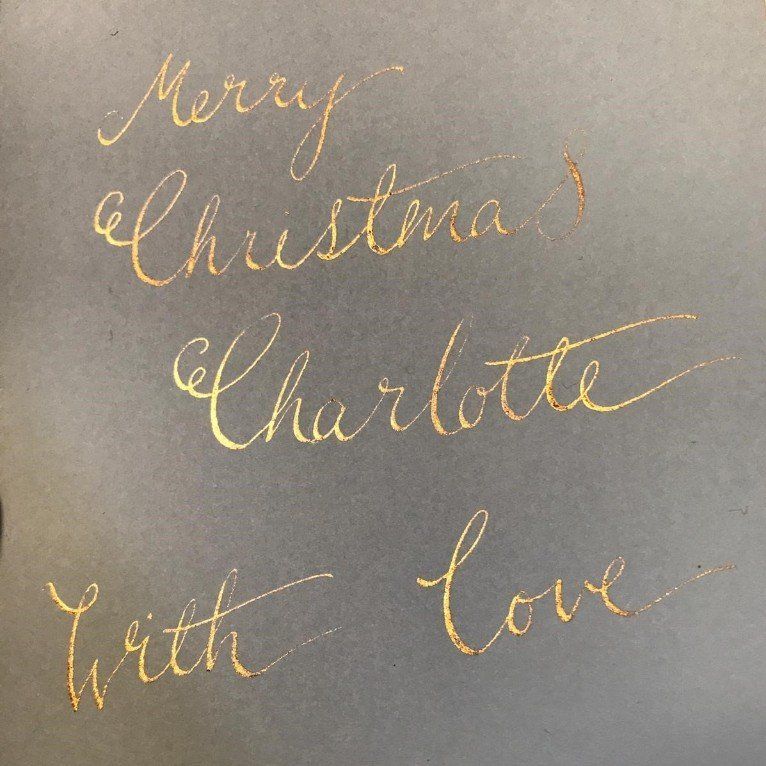 Merry
Christmas
Charlotte
With Love